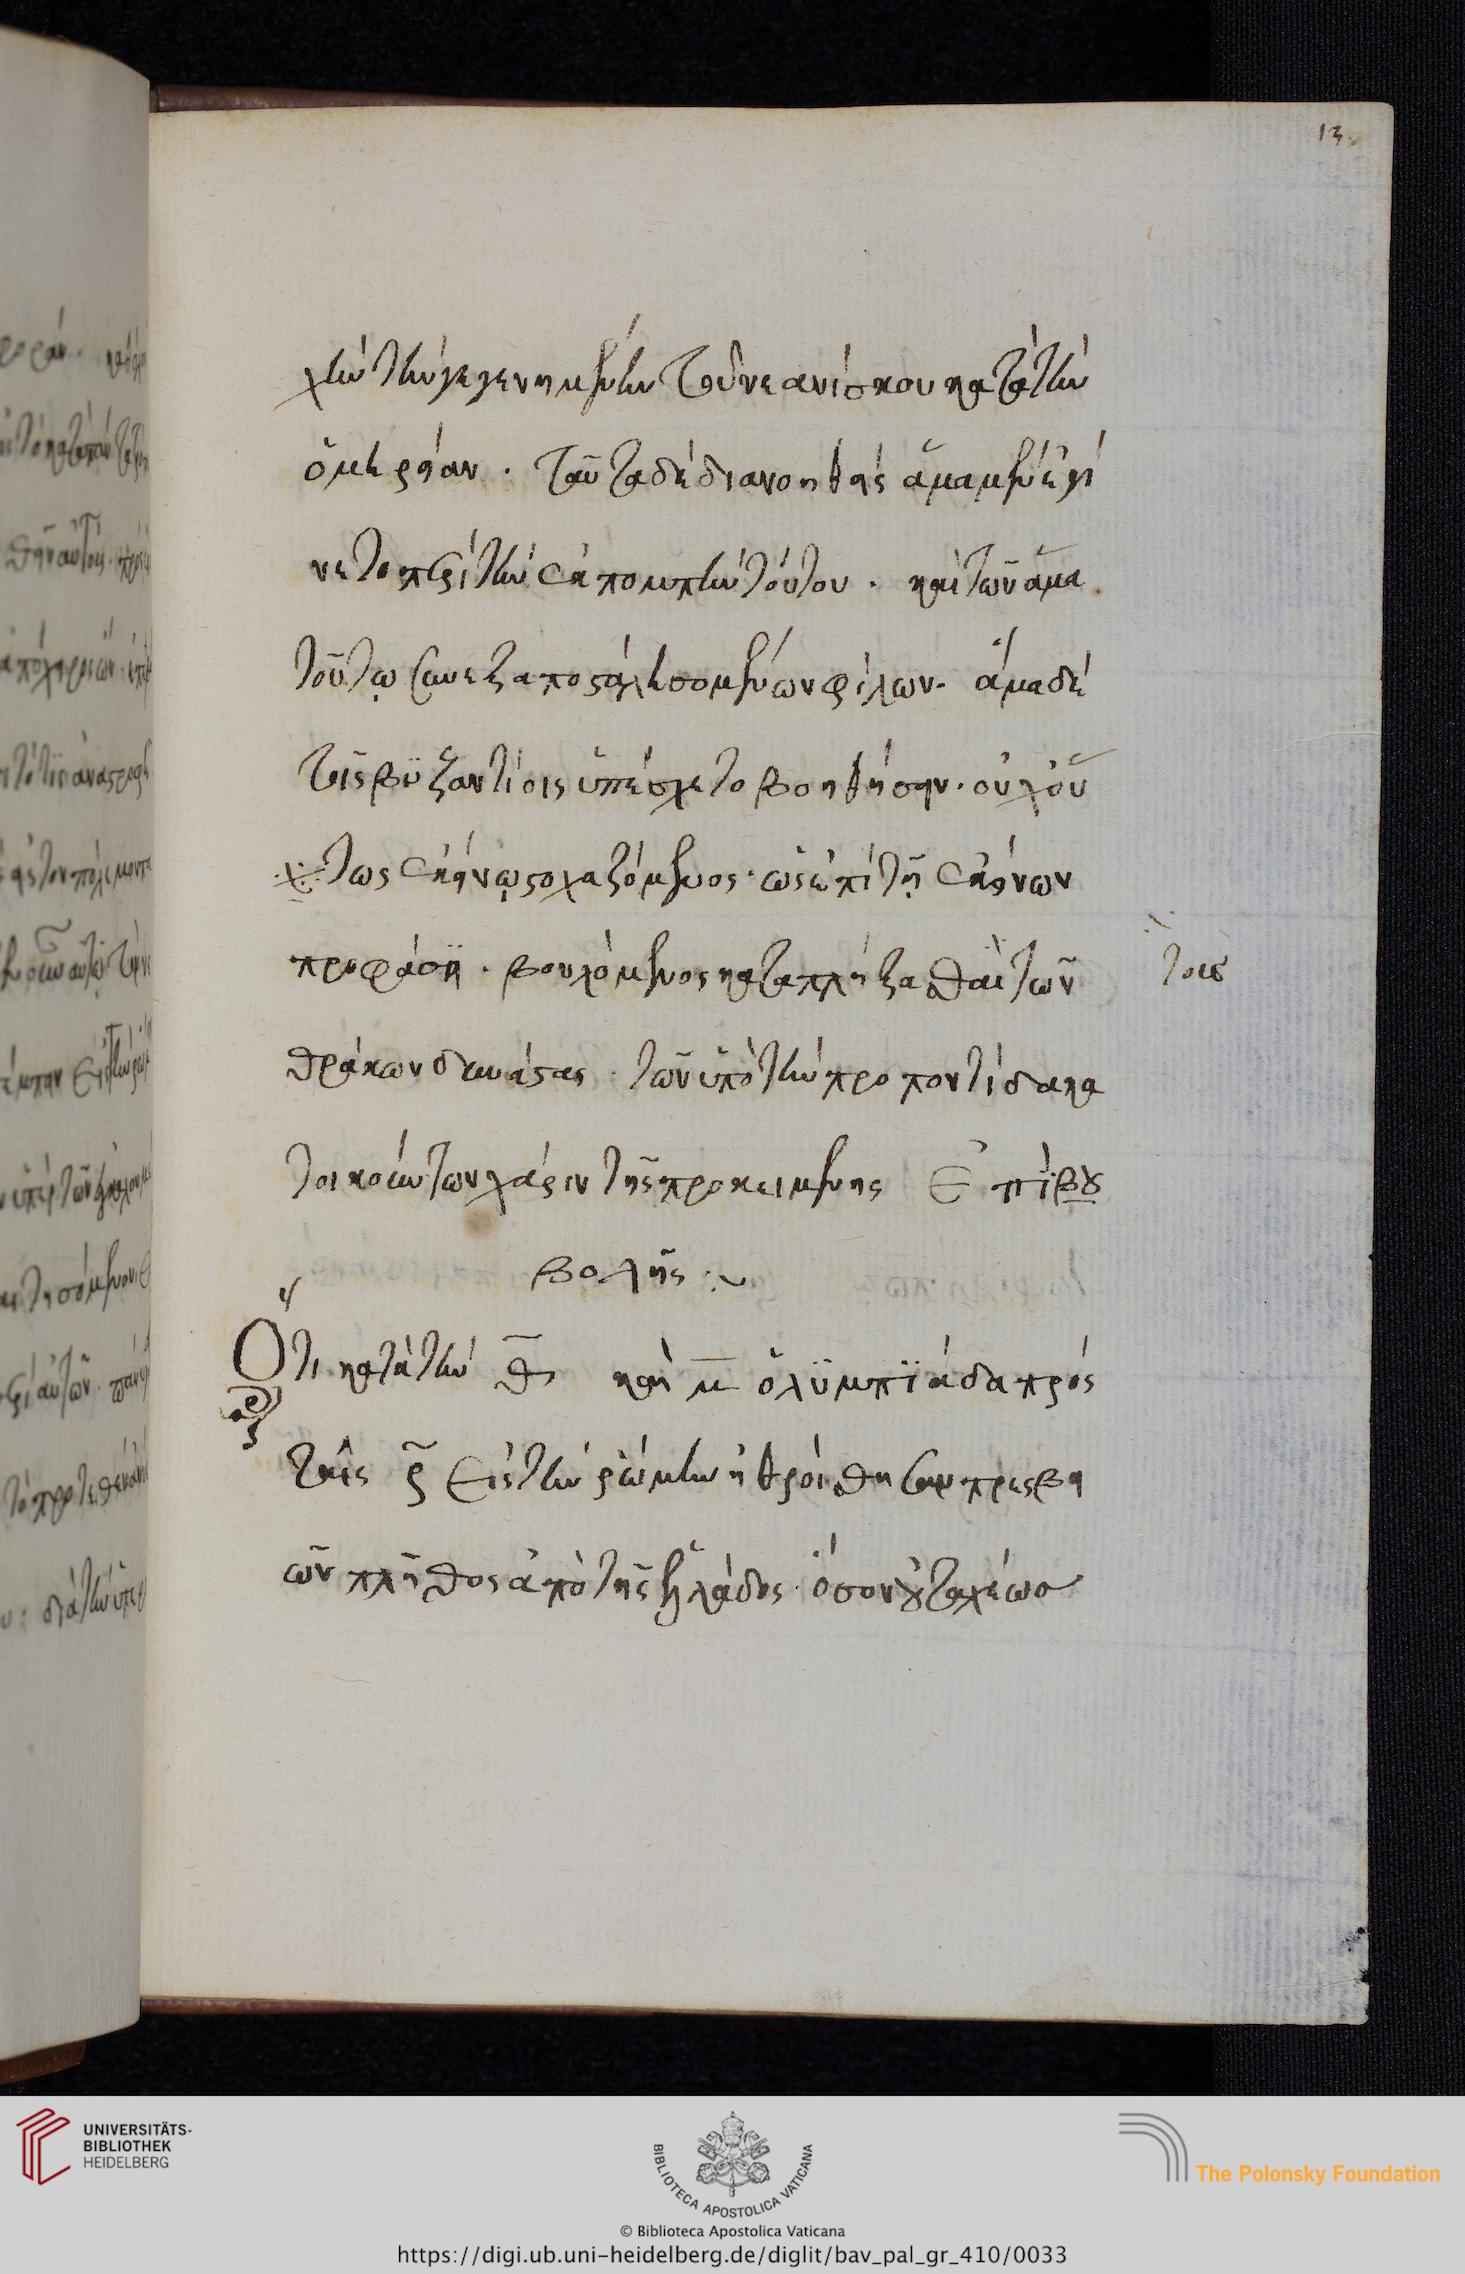 13.
χὴν τὴν γεγενημένην τοῦ νεανίσκου κατὰ τὴν
ὁμηρείαν. ταῦτα δὲ διανοηθεὶς ἅμα μὲν ἐγί
νετο περὶ τὴν ἐκπομπὴν τούτου. καὶ τῶν ἅμα
τούτῳ συνεξαποσταλησομένων φίλων. ἅμα δὲ
τοῖς βυζαντίοις ὑπέσχετο βοηθήσειν. οὐχ οὕ
τως ἐκείνω στοχαζόμενος. ὡς ἐπὶ τῇ ἐκείνων
προφάσει. βουλόμενος καταπλήξασθαι τῶν τοὺς
θρᾳκῶν δυνάστας. τῶν ὑπὸ τὴν προποντίδα κα
τοικούντων χάριν τῆς προκειμένης ἐπιβου
βολῆς:~
Ὅτι κατὰ τὴν θ καὶ μ ὀλυμπιάδα πρὸς
ταῖς ρ εἰς τὴν ῥώμην ἠθροίσθησαν πρεσβει
ῶν πλῆθος ἀπὸ τῆς ἑλλάδος. ὅσον οὐ ταχέως
UNIVERSITÄTS-
BIBLIOTHEK
HEIDELBERG
BIBLIOTECA APOSTOLICA VATICANA
© Biblioteca Apostolica Vaticana
The Polonsky Foundation
https://digi.ub.uni-heidelberg.de/diglit/bav_pal_gr_410/0033